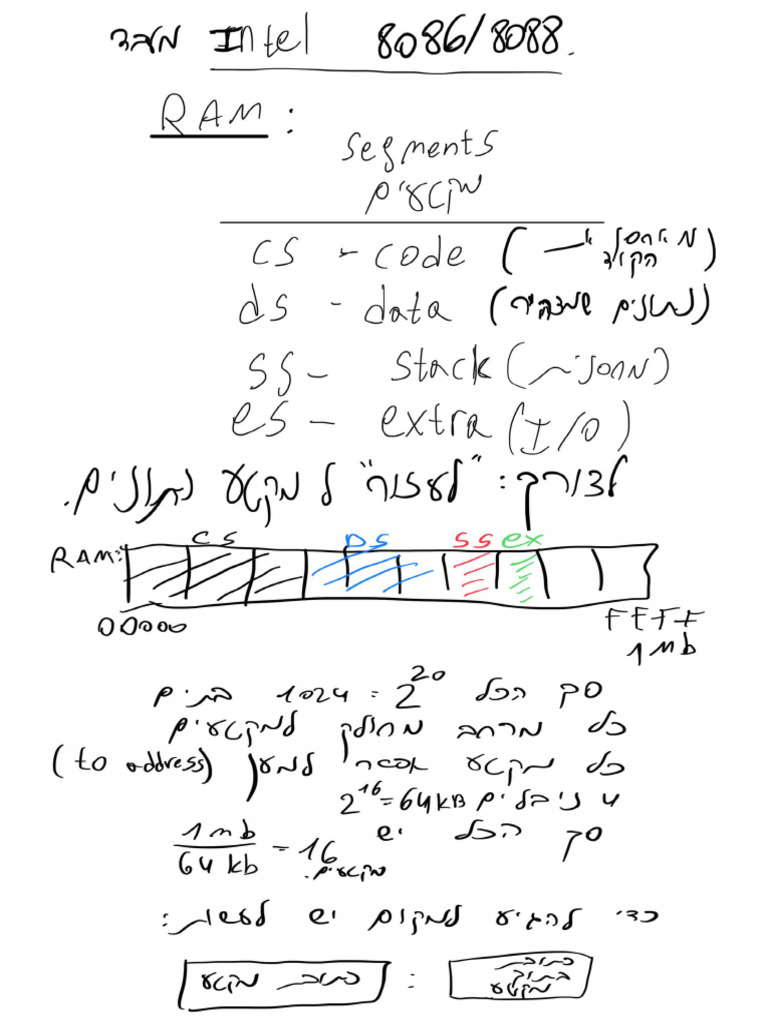 מעבד Intel 8086/8088.
RAM:
segments
מקטעים
cs - code (מאחסן את הקוד)
ds - data (נתונים שמצהיר)
ss - stack (מחסנית)
es - extra (I/O)
לצורך: "לעזור" ל מקטע נתונים.
cs DS ss ex
RAM:
00000 FFFF
1mb
סך הכל 2^20 = 1024 בתים
כל מרחב מחולק למקטעים
כל מקטע אפשר למען (to address)
4 ניבלים 2^16=64KB
סך הכל יש 1mb/64kb = 16 מקטעים.
כדי להגיע למקום יש לעשות:
כתובת מקטע : כתובת בתוך מקטע